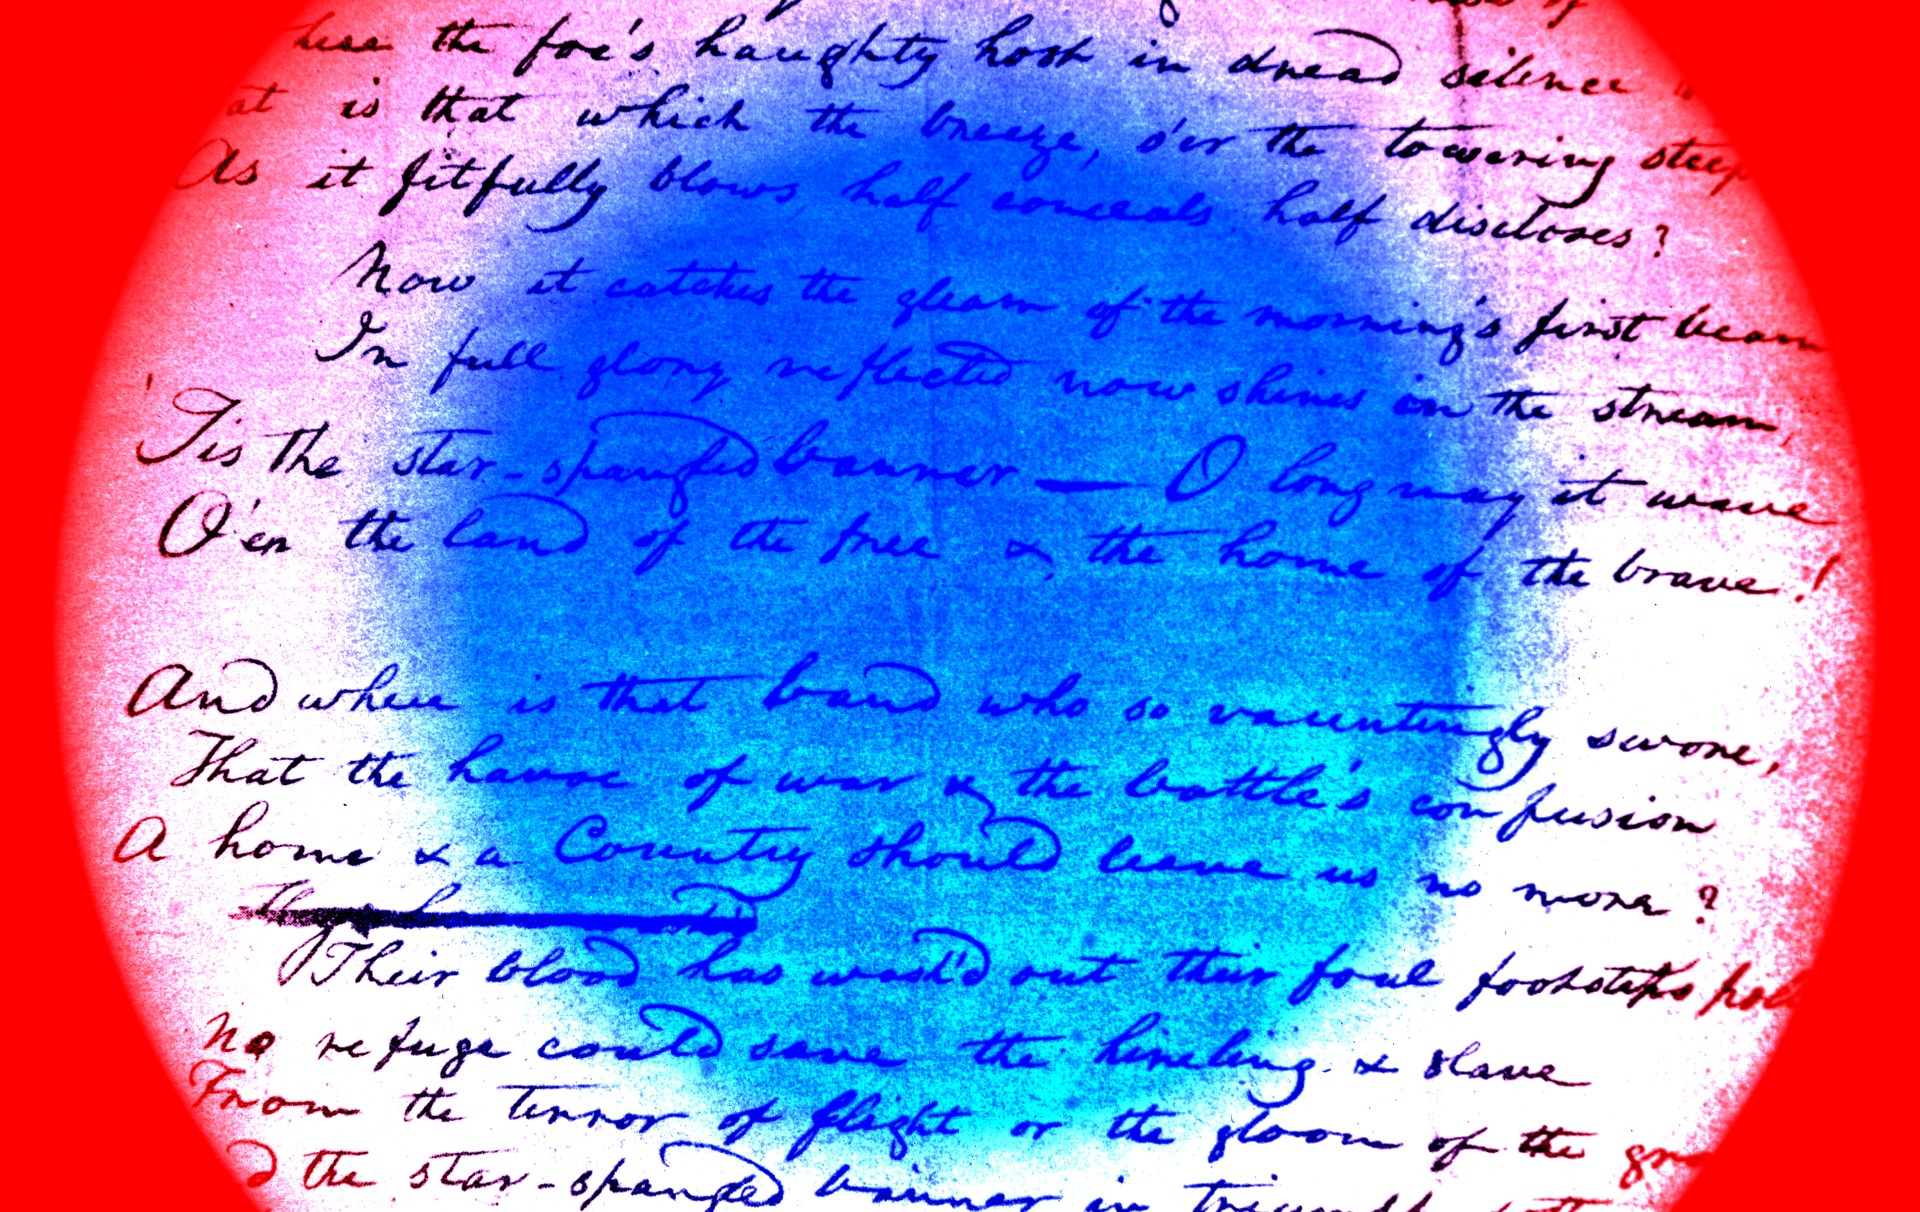 the foe's haughty host in dread silence
is that which the breeze, o'er the towering steep
As it fitfully blows, half conceals, half discloses?
Now it catches the gleam of the morning's first beam
In full glory reflected now shines in the stream,
'Tis the star-spangled banner — O long may it wave
O'er the land of the free & the home of the brave!
And where is that band who so vauntingly swore,
That the havoc of war & the battle's confusion
A home & a Country should leave us no more?
Their blood has wash'd out their foul footsteps
No refuge could save the hireling & slave
From the terror of flight or the gloom of the
the star-spangled banner in triumph